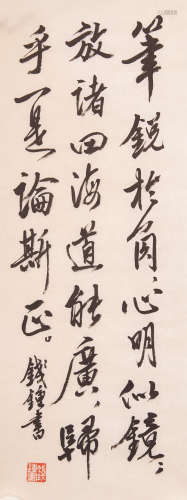 筆銳於角，心明似鏡，
放諸四海道能廣，歸
乎一是論斯正。
錢鍾書